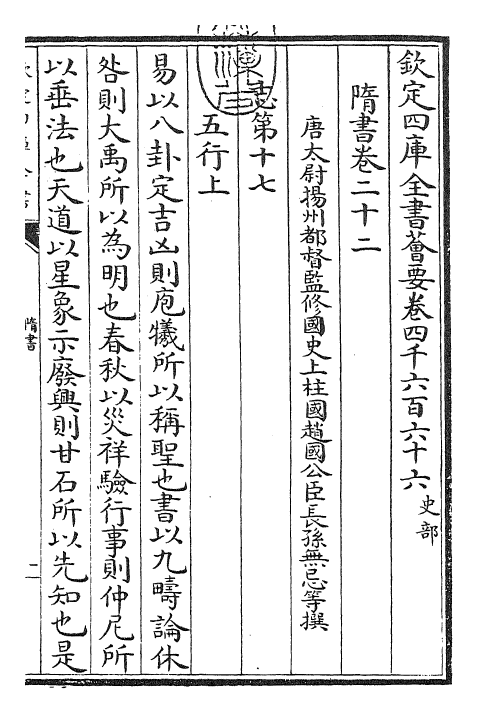 欽定四庫全書薈要卷四千六百六十六 史部
隋書卷二十二
唐太尉揚州都督監修國史上柱國趙國公臣長孫無忌等撰
志第十七
五行上
易以八卦定吉凶則庖犧所以稱聖也書以九疇論休
咎則大禹所以為明也春秋以災祥驗行事則仲尼所
以垂法也天道以星象示廢興則甘石所以先知也是
隋書